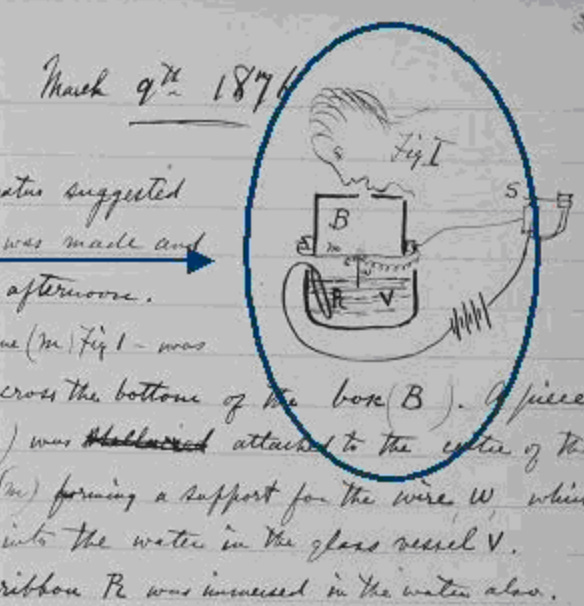 March 9th 1876
Fig 1
S
B
m
W
R V
suggested
was made and
afternoon.
(m) Fig 1 - was
cross the bottom of the box (B). A piece
) was attached to the centre of the
(m) forming a support for the wire W, which
into the water in the glass vessel V.
ribbon R was immersed in the water also.